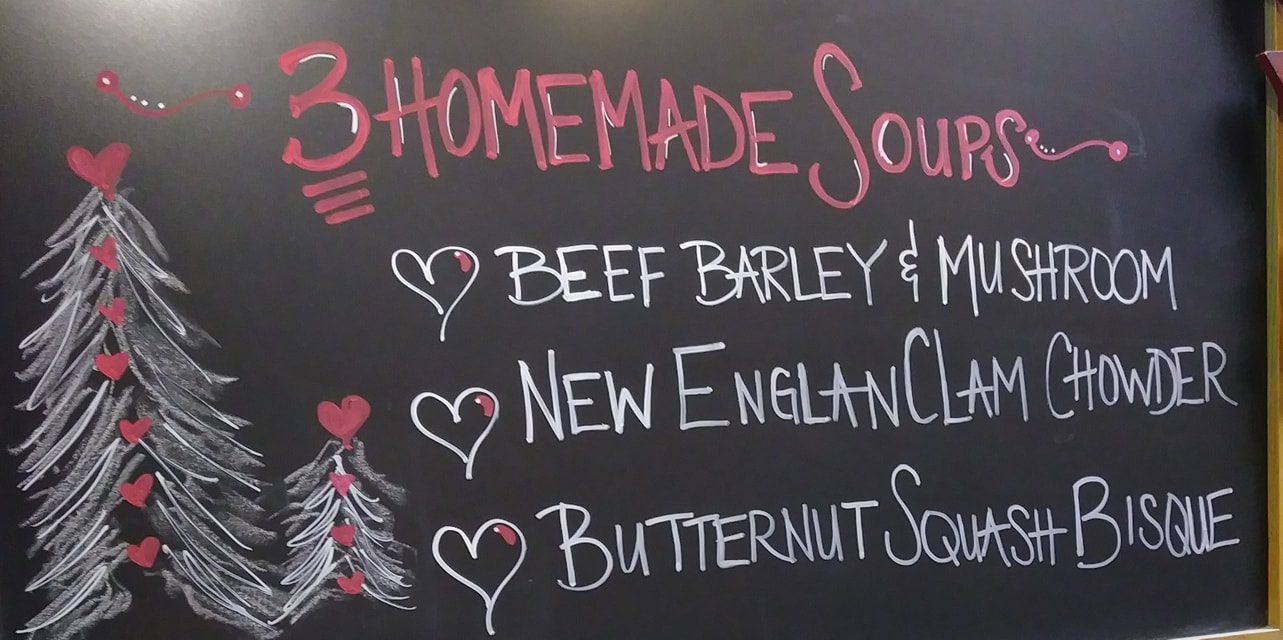 3 HOMEMADE SOUPS
BEEF BARLEY & MUSHROOM
NEW ENGLAN CLAM CHOWDER
BUTTERNUT SQUASH BISQUE